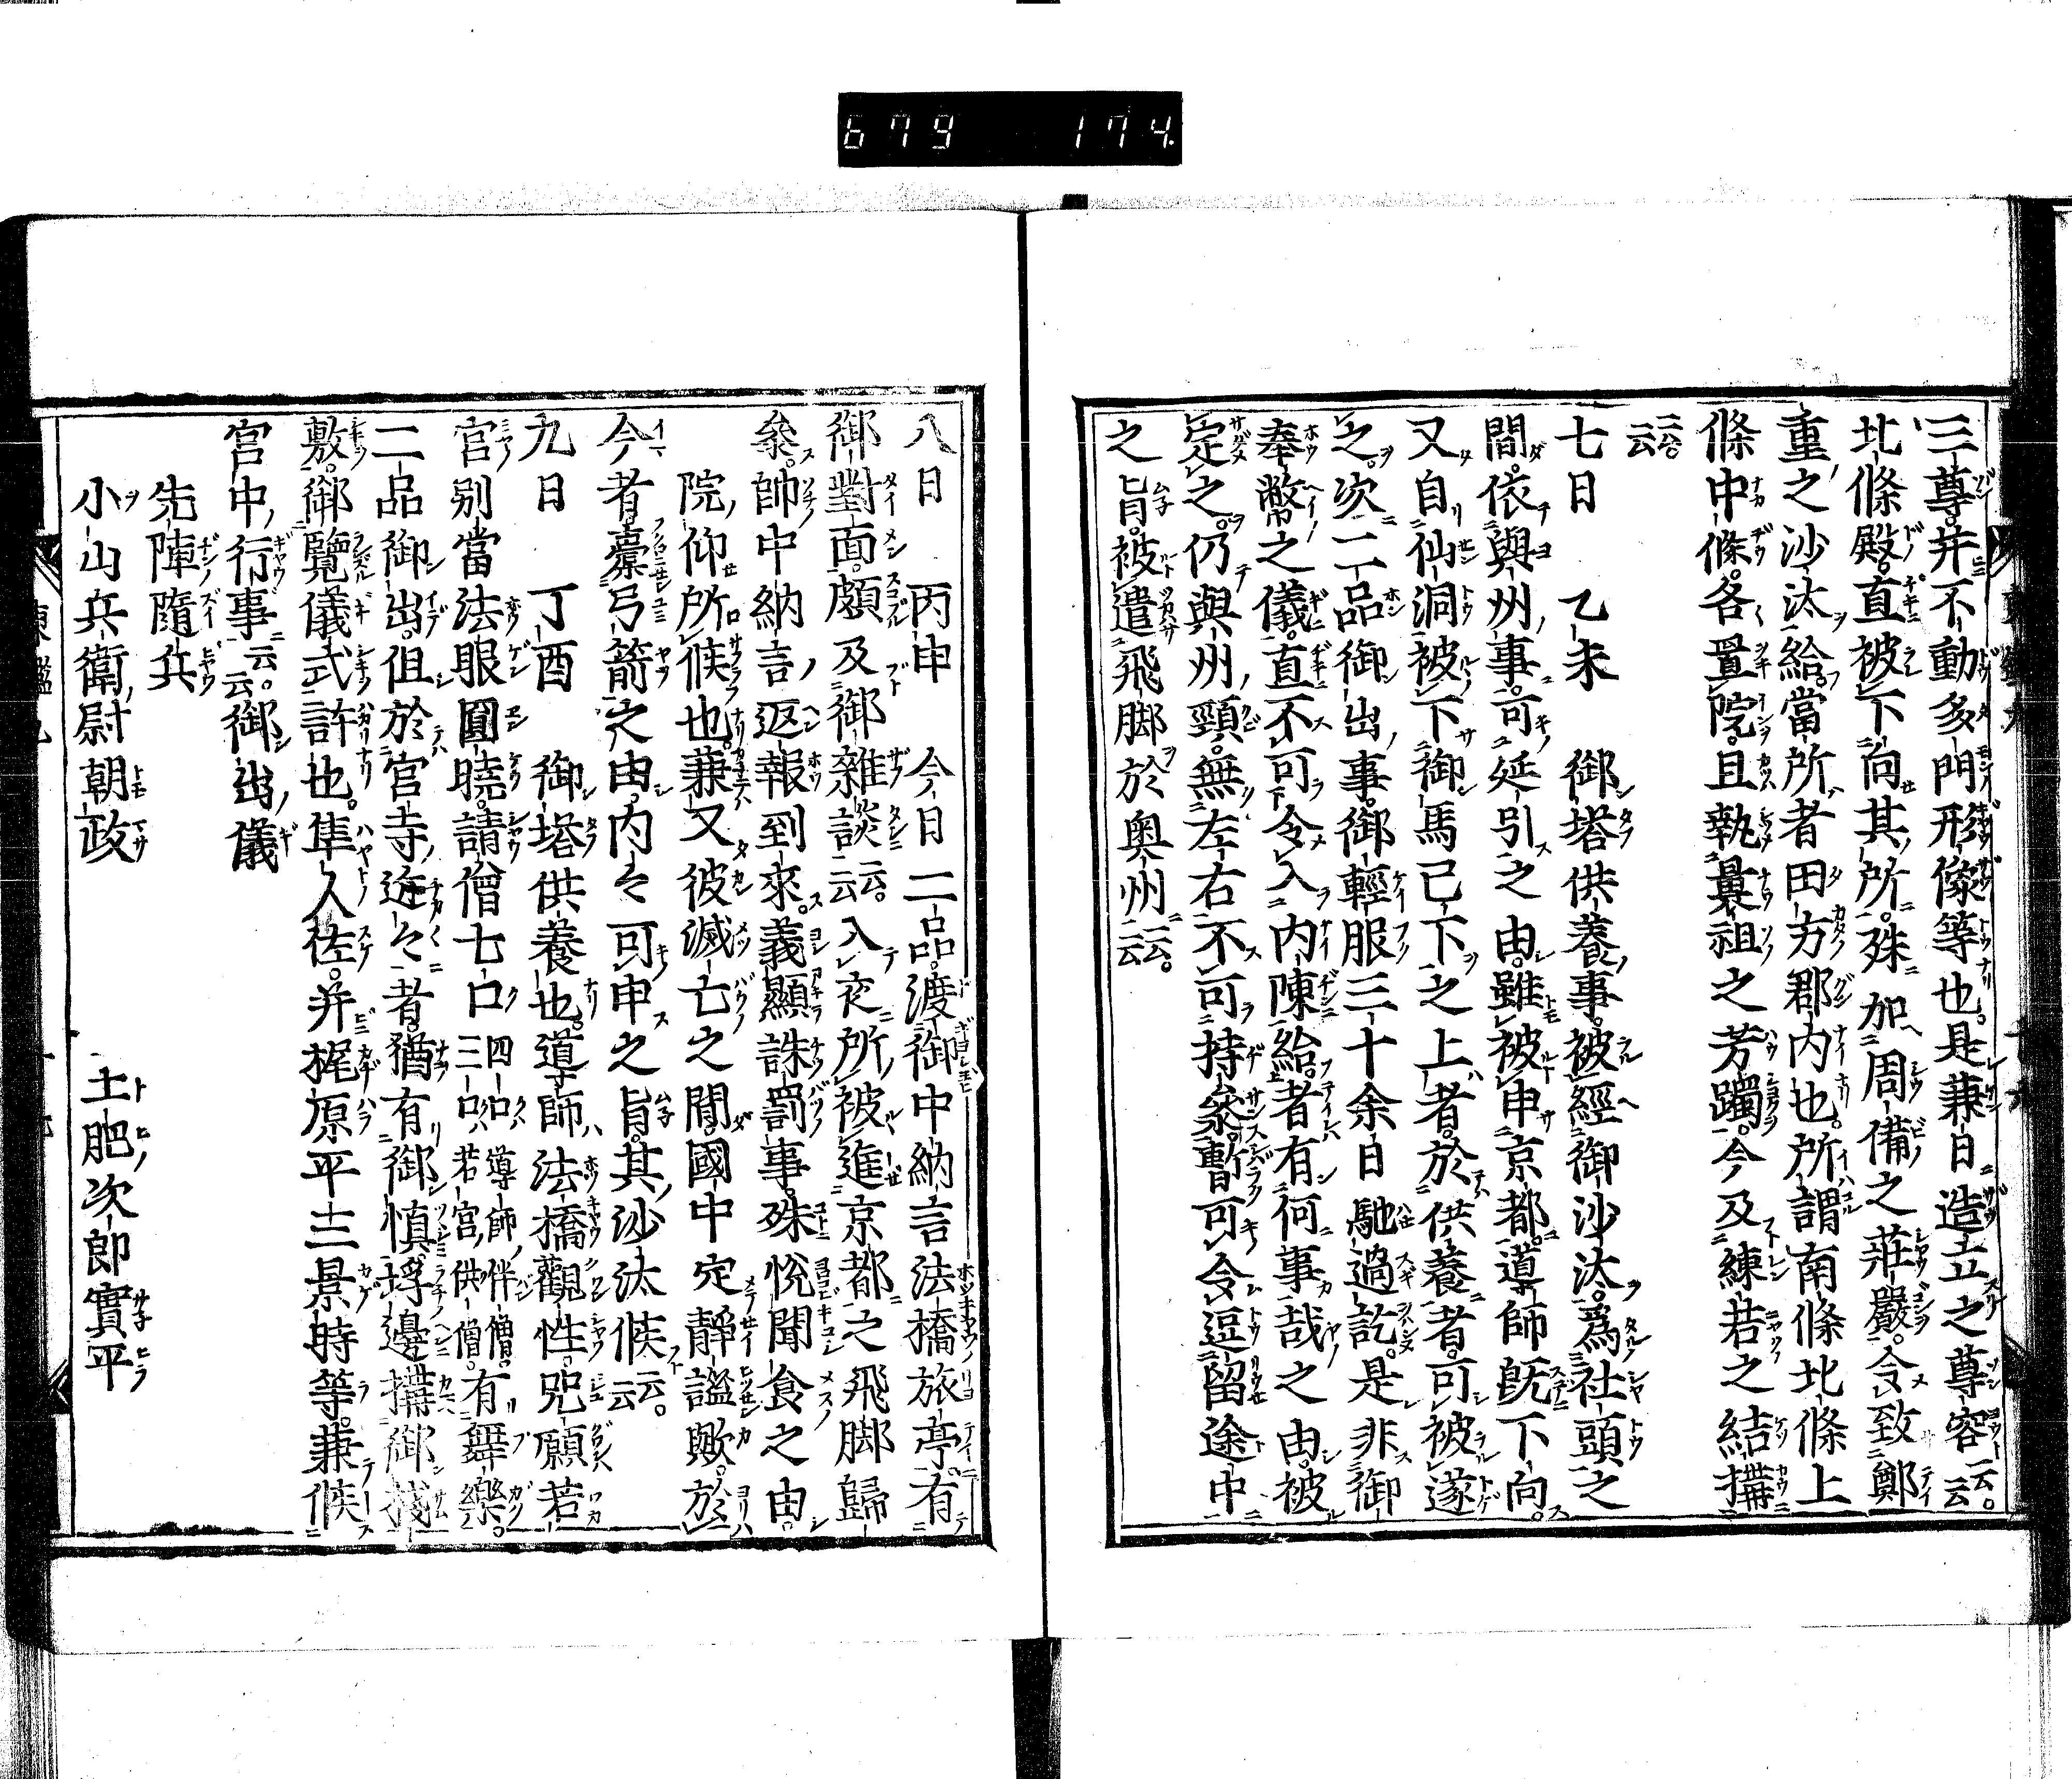 679 174.
三尊。并不動多門形像等也。是兼日造立之尊容云云。
北條殿。直被下向其所。殊加周備之莊嚴。令致鄭
重之沙汰給。當所者田方郡內也。所謂南條北條上
條中條。各置院。且執曩祖之芳躅。今及練若之結搆
云云。
七日 乙未 御塔供養事。被經御沙汰。爲社頭之
間。依與州事。可延引之由。雖被申京都。導師旣下向。
又自仙洞被下御馬已下之上者。於供養者。可被遂
之。次二品御出事。御輕服三十余日馳過訖。是非御
奉幣之儀。直不可令入內陳給者。有何事哉之由。被
定之。仍與州頸。無左右不可持參。暫可令逗留途中
之旨。被遣飛脚於奥州云云。
八日 丙申 今日二品。渡御中納言法橋旅亭。有
御對面。頗及御雜談云云。入夜所被進京都之飛脚歸
參。帥中納言返報到來。義顯誅罰事。殊悅聞食之由。
院仰所候也。兼又彼滅亡之間。國中定靜謐歟。於
今者。櫜弓箭之由。內々可申之旨。其沙汰候云云。
九日 丁酉 御塔供養也。導師法橋觀性。呪願若
宮別當法眼圓曉。請僧七口四口導師伴僧。三口若宮供僧。有舞樂。
二品御出。但於宮寺近々者。猶有御慎。埒邊搆御棧
敷。御覽儀式許也。隼人佐。并梶原平三景時等。兼候
宮中行事云云。御出儀
先陣隨兵
小山兵衛尉朝政 土肥次郎實平